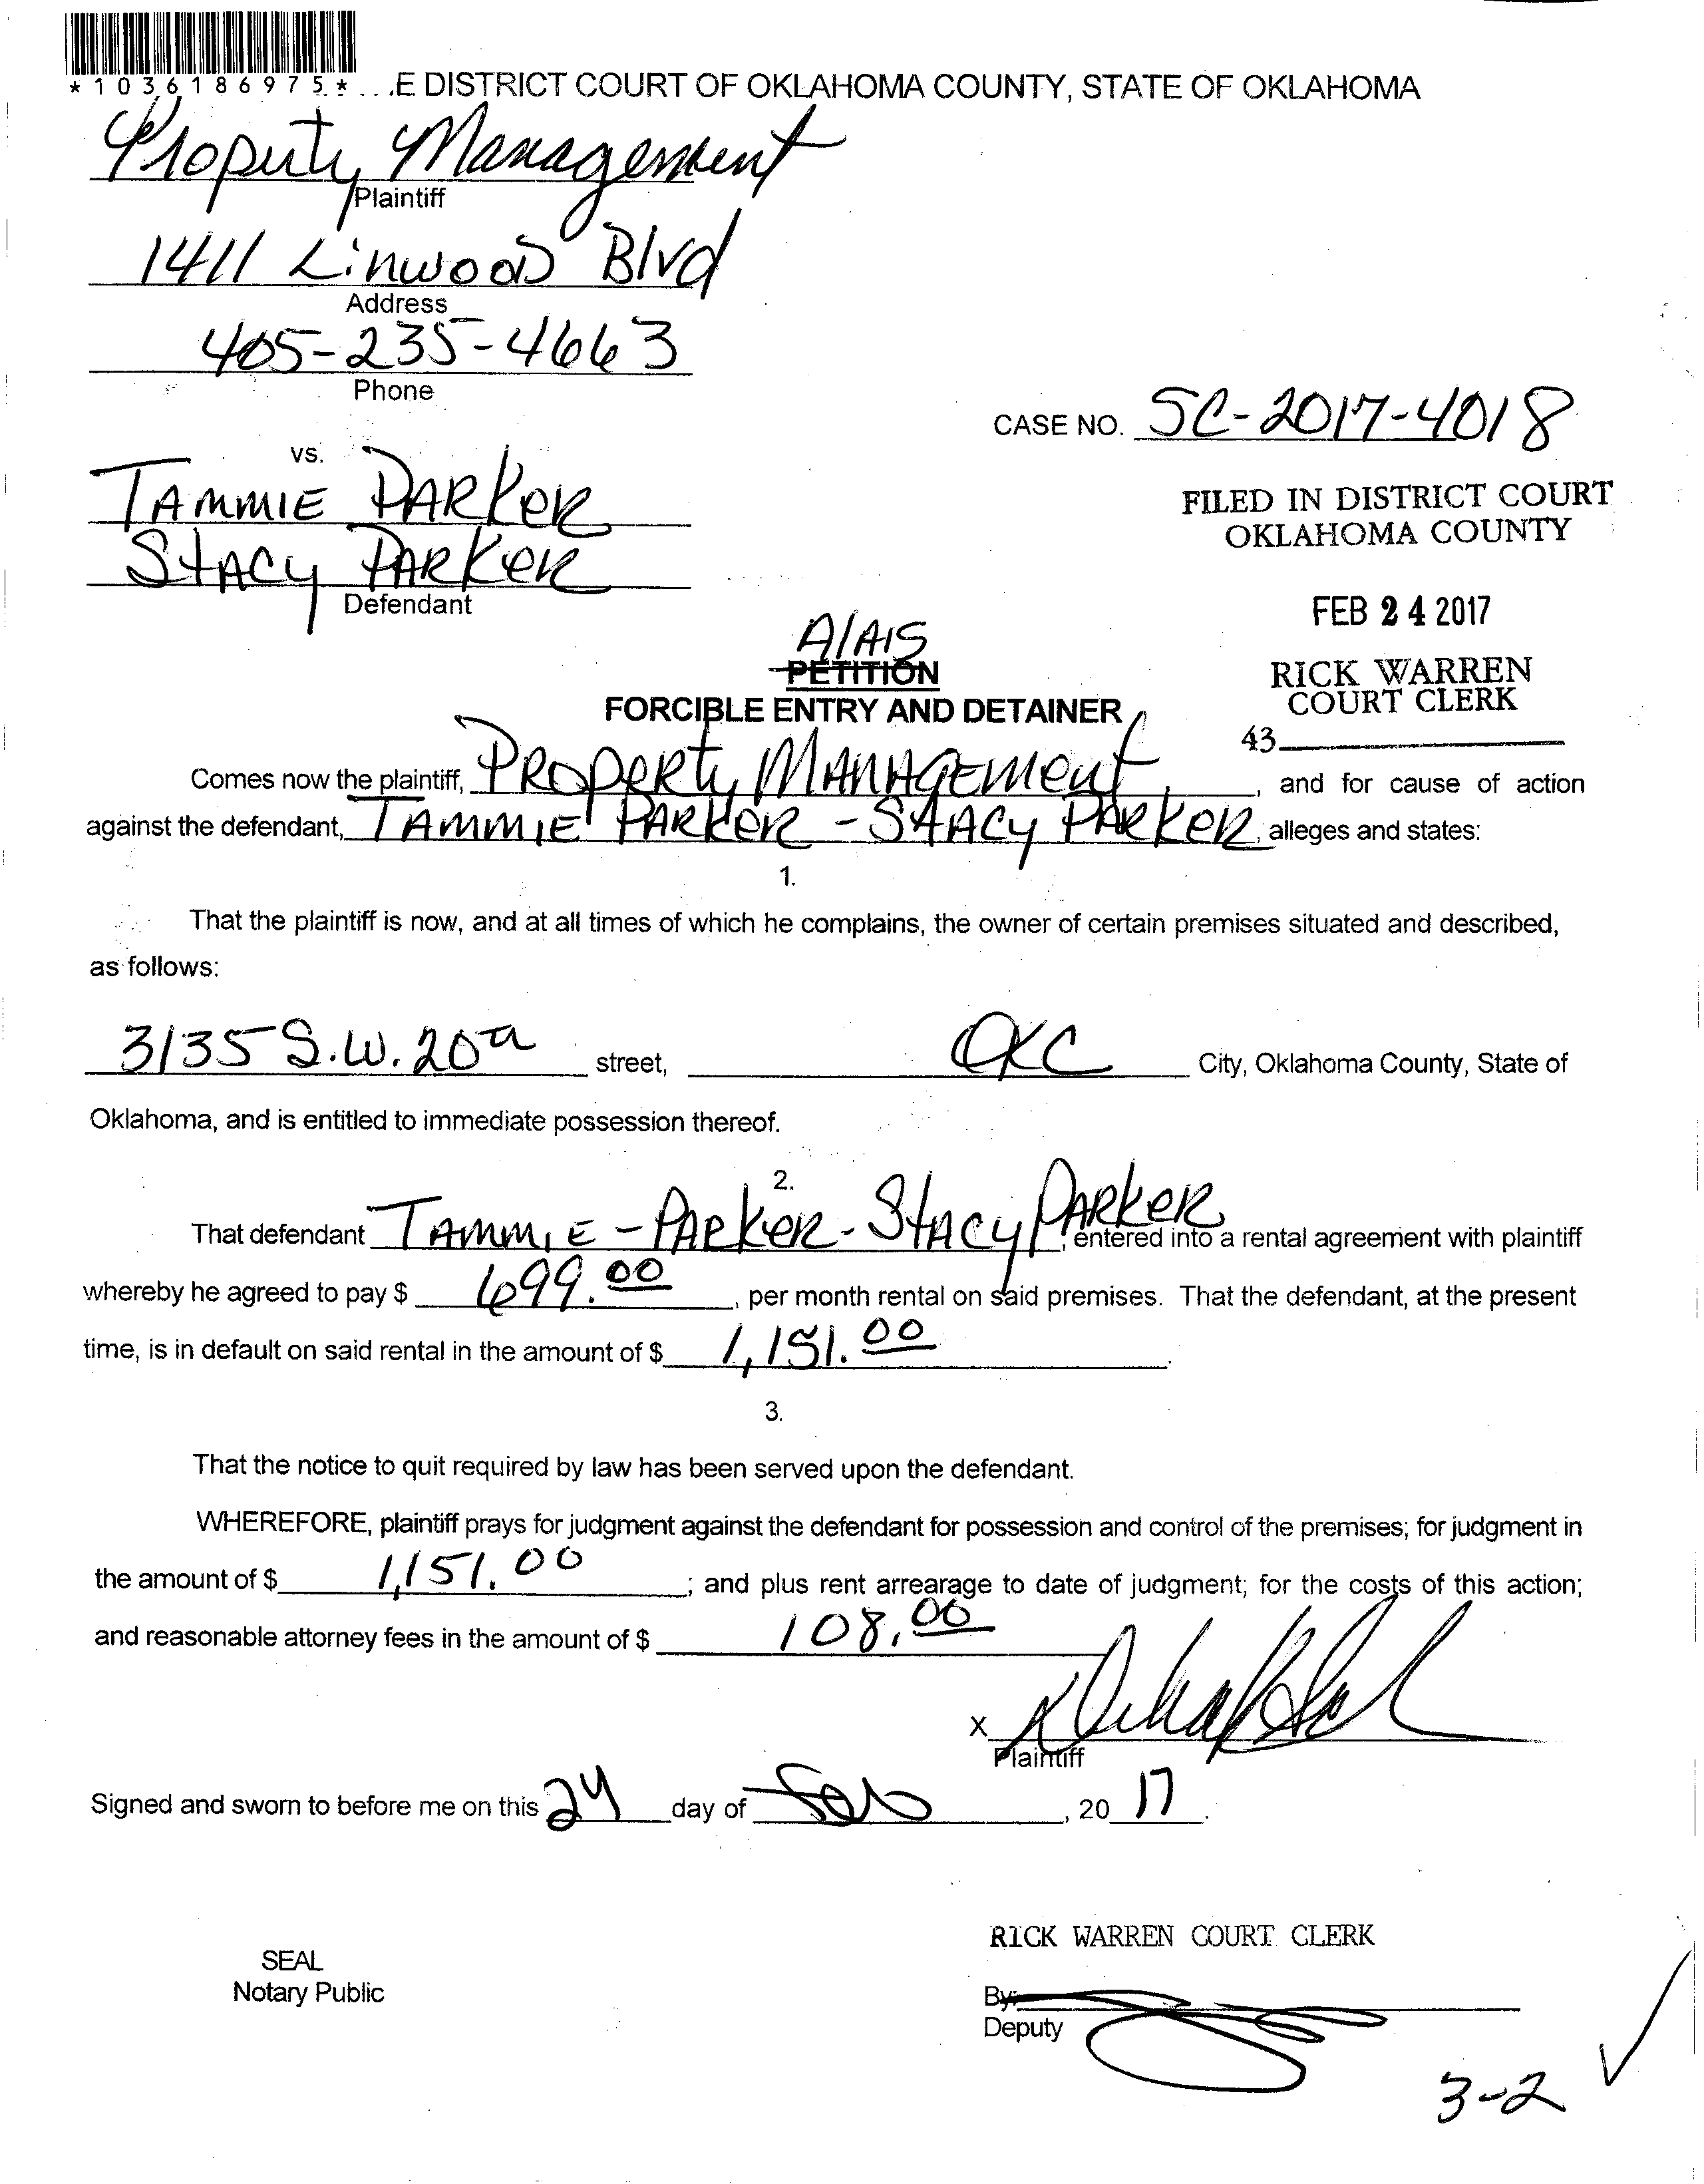 *1036186975* ...E DISTRICT COURT OF OKLAHOMA COUNTY, STATE OF OKLAHOMA
Property Management
Plaintiff
1411 Linwood Blvd
Address
405-235-4663
Phone
CASE NO. SC-2017-4018
vs.
TAMMIE PARKER
STACY PARKER
Defendant
FILED IN DISTRICT COURT
OKLAHOMA COUNTY
FEB 24 2017
RICK WARREN
COURT CLERK
43
AlAIS
PETITION
FORCIBLE ENTRY AND DETAINER
Comes now the plaintiff, PROPERTY MANAGEMENT, and for cause of action
against the defendant, TAMMIE PARKER - STACY PARKER, alleges and states:
1.
That the plaintiff is now, and at all times of which he complains, the owner of certain premises situated and described,
as follows:
3135 S.W. 20th street, OKC City, Oklahoma County, State of
Oklahoma, and is entitled to immediate possession thereof.
2.
That defendant TAMMIE - PARKER - STACY PARKER, entered into a rental agreement with plaintiff
whereby he agreed to pay $ 699.00, per month rental on said premises. That the defendant, at the present
time, is in default on said rental in the amount of $ 1,151.00.
3.
That the notice to quit required by law has been served upon the defendant.
WHEREFORE, plaintiff prays for judgment against the defendant for possession and control of the premises; for judgment in
the amount of $ 1,151.00; and plus rent arrearage to date of judgment; for the costs of this action;
and reasonable attorney fees in the amount of $ 108.00
X
Plaintiff
Signed and sworn to before me on this 24 day of Feb, 2017.
RICK WARREN COURT CLERK
SEAL
Notary Public
By:
Deputy
3-2